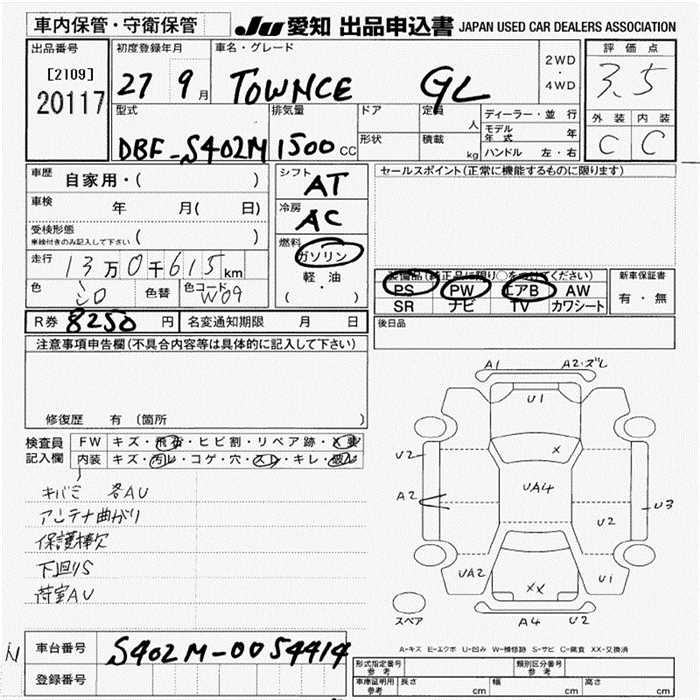 車内保管・守衛保管
JU 愛知 出品申込書 JAPAN USED CAR DEALERS ASSOCIATION
出品番号
[2109]
20117
初度登録年月
27 9月
車名・グレード
TOWNCE GL
2WD
・
4WD
評価点
3.5
外装 内装
C C
型式
DBF-S402M
排気量
1500 CC
ドア
形状
定員
人
積載
kg
ディーラー・並行
モデル年式 年
ハンドル 左・右
車歴
自家用・( )
車検
年 月( 日)
受検形態
車検付きのみ記入して下さい ( )
走行
13万0千615km
色
シロ
色替
色コード
W09
シフト
AT
冷房
AC
燃料
ガソリン
軽・油
( )
セールスポイント(正常に機能するものに限ります)
装備品(純正品に限り○をつけてください)
PS PW エアB AW
SR ナビ TV カワシート
新車保証書
有・無
後日品
R券 8250 円
名変通知期限 月 日
注意事項申告欄(不具合内容等は具体的に記入して下さい)
修復歴 有 〔箇所 〕
検査員記入欄
FW キズ・飛石・ヒビ割・リペア跡・×要
内装 キズ・汚レ・コゲ・穴・スレ・キレ・破レ
キバミ 各AU
アンテナ曲がり
保護棒欠
下廻りS
荷室AU
A1 A2・ズレ
U1
U2
X
A2
UA4
U3
U2
UA2
XX
U1
A4 U2
スペア
A-キズ E-エクボ U-凹み W-補修跡 S-サビ C-腐食 XX-交換済
N
車台番号
S402M-0054414
登録番号
形式指定番号
参考
類別区分番号
参考
車庫証明用
参考
長さ cm 幅 cm 高さ cm